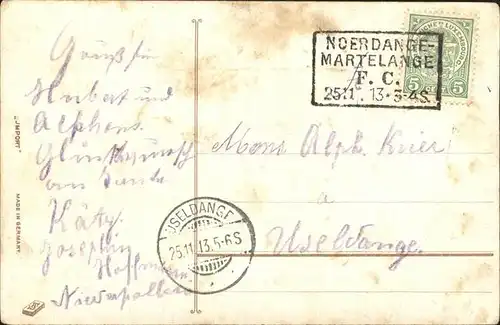 Gruß für
Hubert und
Alphons.
Glückwunsch
an Tante
Käty.
Josephin
Hoffmann
Niederpallen
"IMPORT"
MADE IN GERMANY.
NOERDANGE-
MARTELANGE
F. C.
25.11. 13-3-4S.
5 5
Mons Alph. Krier
a
Useldange.
USELDANGE
25.11.13.5-6S